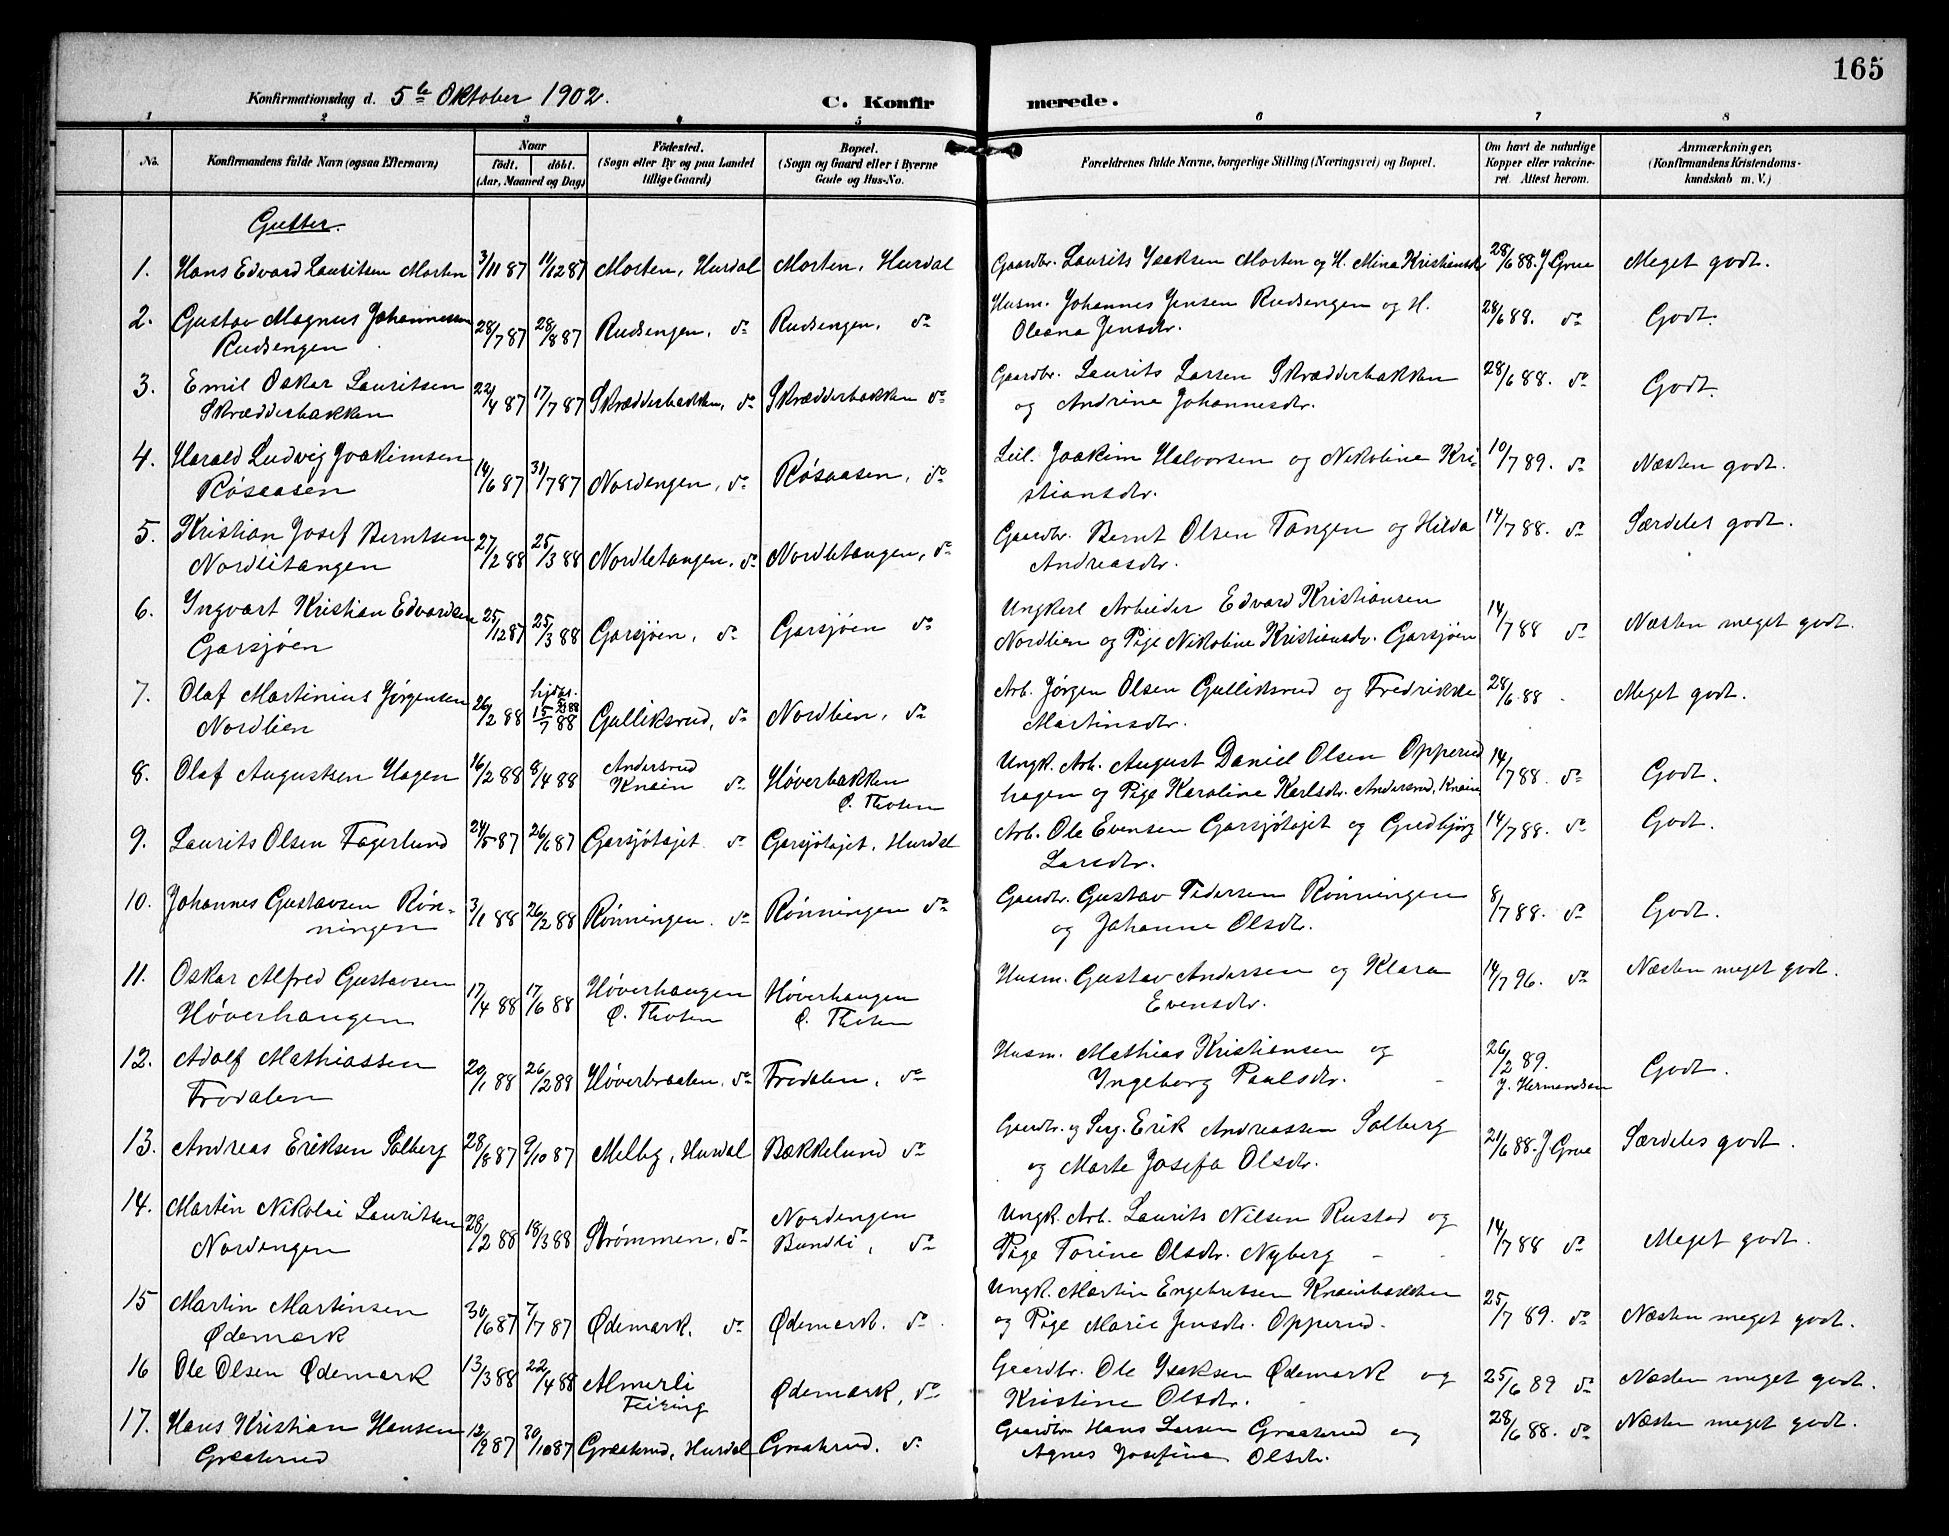 165
Konfirmationsdag d. 5te Oktober 1902.
C. Konfirmerede.
1 2 3 4 5 6 7 8
No.
Konfirmandens fulde Navn (ogsaa Efternavn)
Naar
født. døbt.
(Aar, Maaned og Dag)
Fødested.
(Sogn eller By og paa Landet
tillige Gaard)
Bopæl.
(Sogn og Gaard eller i Byerne
Gade og Hus-No.
Forældrenes fulde Navne, borgerlige Stilling (Næringsvei) og Bopæl.
Om havt de naturlige
Kopper eller vakcine-
ret. Attest herom.
Anmærkninger,
(Konfirmandens Kristendoms-
kundskab m. V.)
Gutter.
1. Hans Edvard Lauritsen Morten 3/11 87 11/12 87 Morten, Hurdal Morten, Hurdal Gaardbr. Laurits Isaksen Morten og H. Mina Kristiansdr 28/6 88. J Grue Meget godt.
2. Gustav Magnus Johannessen 28/7 87 28/8 87 Rudsengen, do Rudsengen, do Husm. Johannes Jensen Rudsengen og H. 28/6 88. do Godt.
Rudsengen Oleana Jensdtr.
3. Emil Oskar Lauritsen 22/4 87 17/7 87 Skrædderbakken, do Skrædderbakken do Gaardbr. Laurits Larsen Skrædderbakken 28/6 88. do Godt.
Skrædderbakken og Andrine Johannesdr.
4. Harald Ludvig Joakimsen 14/6 87 31/7 87 Nordengen, do Røsaasen, do Leil. Joakim Halvorsen og Nikoline Kri- 10/7 89. do Næsten godt.
Røsaasen stiansdtr.
5. Kristian Josef Berntsen 27/2 88 25/3 88 Nordlitangen, do Nordlitangen, do Gaardbr. Bernt Olsen Tangen og Hilda 14/7 88. do Særdeles godt.
Nordlitangen Andreasdtr.
6. Ingvart Kristian Edvardsen 25/12 87 25/3 88 Garsjøen, do Garsjøen do Ungkarl Arbeider Edvard Kristiansen 14/7 88 do Næsten meget godt.
Garsjøen Nordlien og Pige Nikoline Kristiansdr. Garsjøen
7. Olaf Martinius Jørgensen 26/2 88 15/7 88 Gulliksrud, do Nordlien, do Arb. Jørgen Olsen Gulliksrud og Fredrikke 28/6 88 Meget godt.
Nordlien Martinsdtr.
8. Olaf Augustsen Hagen 16/2 88 8/4 88 Andersrud Høverbakken Ungk. Arb. August Daniel Olsen Opperud 14/7 88. do Godt.
Knain do Ø. Thoten hagen og Pige Karoline Karlsdr. Andersrud, Knain
9. Laurits Olsen Fagerlund 24/5 87 26/6 87 Garsjøtajet do Garsjøtajet, Hurdal Arb. Ole Evensen Garsjøtajet og Gudbjørg 14/7 88. do Godt.
Larsdtr.
10. Johannes Gustavsen Røn- 3/1 88 26/2 88 Rønningen. do Rønningen do Gaardbr. Gustav Pedersen Rønningen 8/7 88. do Godt.
ningen og Johanne Olsdtr.
11. Oskar Alfred Gustavsen 17/4 88 17/6 88 Høverhaugen Høverhaugen Husm. Gustav Andersen og Klara 14/7 96. do Næsten meget godt.
Høverhaugen Ø. Thoten Ø. Thoten Evensdtr.
12. Adolf Mathiassen 20/1 88 26/2 88 Høverbraaten, do Frodalen, do Husm. Mathias Kristiansen og 26/2 89. Godt.
Frodalen Ingeborg Paulsdr. J. Hermandsen
13. Andreas Eriksen Solberg 28/8 87 9/10 87 Melby, Hurdal Bækkelund do Gaardbr. og Serg. Erik Andreassen Solberg 21/6 88. J Grue Særdeles godt.
og Marte Josefa Olsdtr.
14. Martin Nikolai Lauritsen 28/2 88 18/3 88 Strømmen, do Nordengen Ungk. Arb. Laurits Nilsen Rustad og 14/7 88 do Meget godt.
Nordengen Bundli, do Pige Torine Olsdtr. Nyberg
15 Martin Martinsen 30/6 87 7/7 87 Ødemark. do Ødemark. do Ungk. Martin Engebretsen Knainbakken 25/7 89. do Næsten meget godt.
Ødemark og Pige Marie Jensdtr. Opperud.
16 Ole Olsen Ødemark 13/3 88 22/4 88 Almerli Ødemark, do Gaardbr. Ole Isaksen Ødemark og 25/6 89 do Næsten meget godt.
Feiring Kristine Olsdtr.
17. Hans Kristian Hansen 12/9 87 30/10 87 Graaterud, Hurdal Graaterud. do Gaardbr Hans Larsen Graaterud og 28/6 88. do Næsten meget godt.
Graaterud Agnes Josefine Olsdtr.